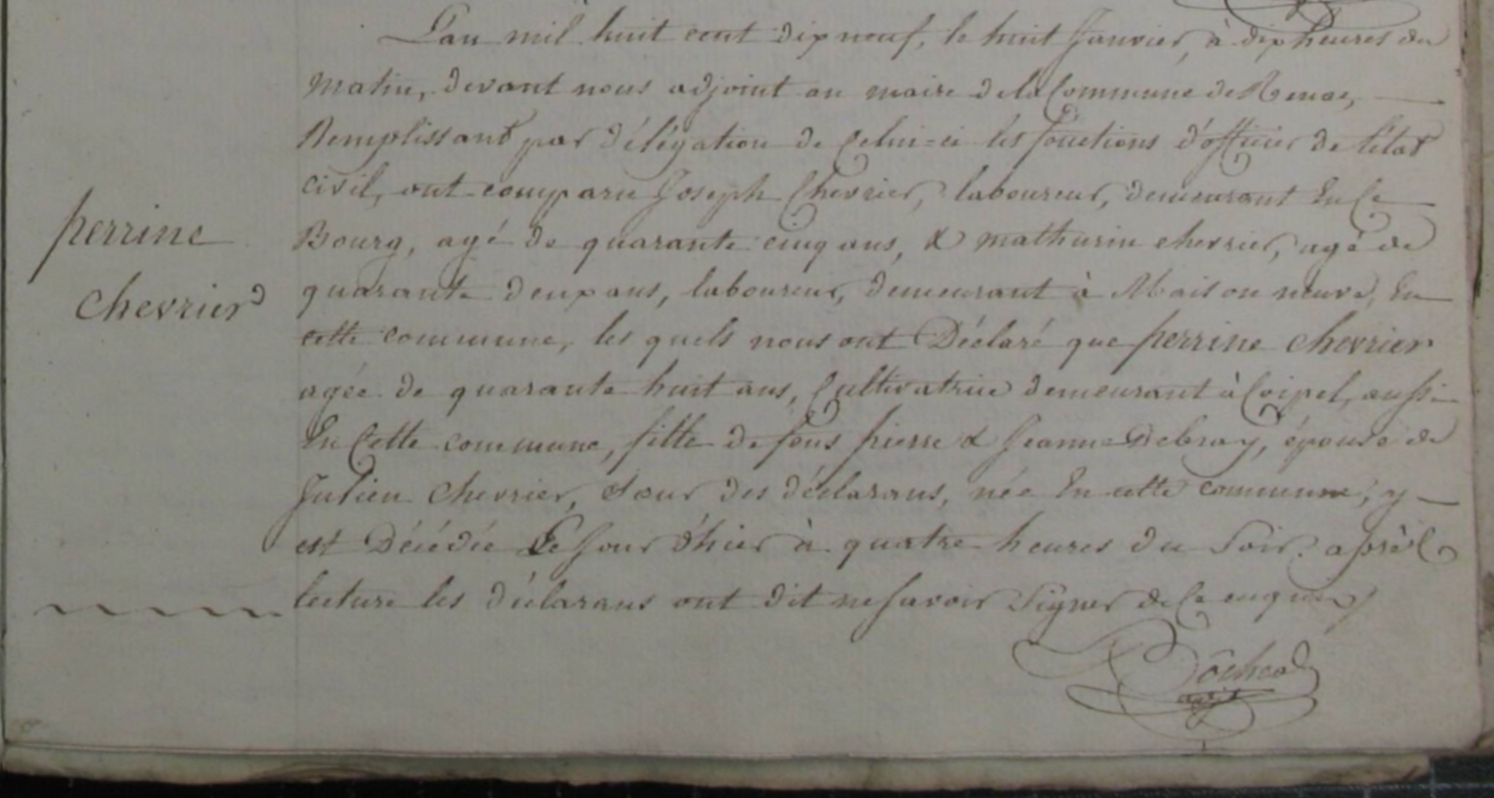 L'an mil huit cent dix neuf, le huit Janvier, à dix heures du
matin, devant nous adjoint au maire de la Commune de Renac,
Remplissant par délégation de Celui-ci les fonctions d'officier de l'état
civil, ont comparu Joseph Chevrier, laboureur, demeurant En Ce
perrine
Bourg, agé de quarante cinq ans, & mathurin chevrier, agé de
chevrier
quarante deux ans, laboureur, demeurant à Maison neuve, En
cette commune, les quels nous ont Déclaré que perrine chevrier
agée de quarante huit ans, Cultivatrice demeurant à Coipel, aussi
En Cette commune, fille de feus pierre & Jeanne Debray, épouse de
Julien Chevrier, soeur des déclarans, née En cette commune, y
est Décédée Le Jour d'hier à quatre heures du Soir. après
lecture les déclarans ont dit ne savoir Signer de Ce enquis